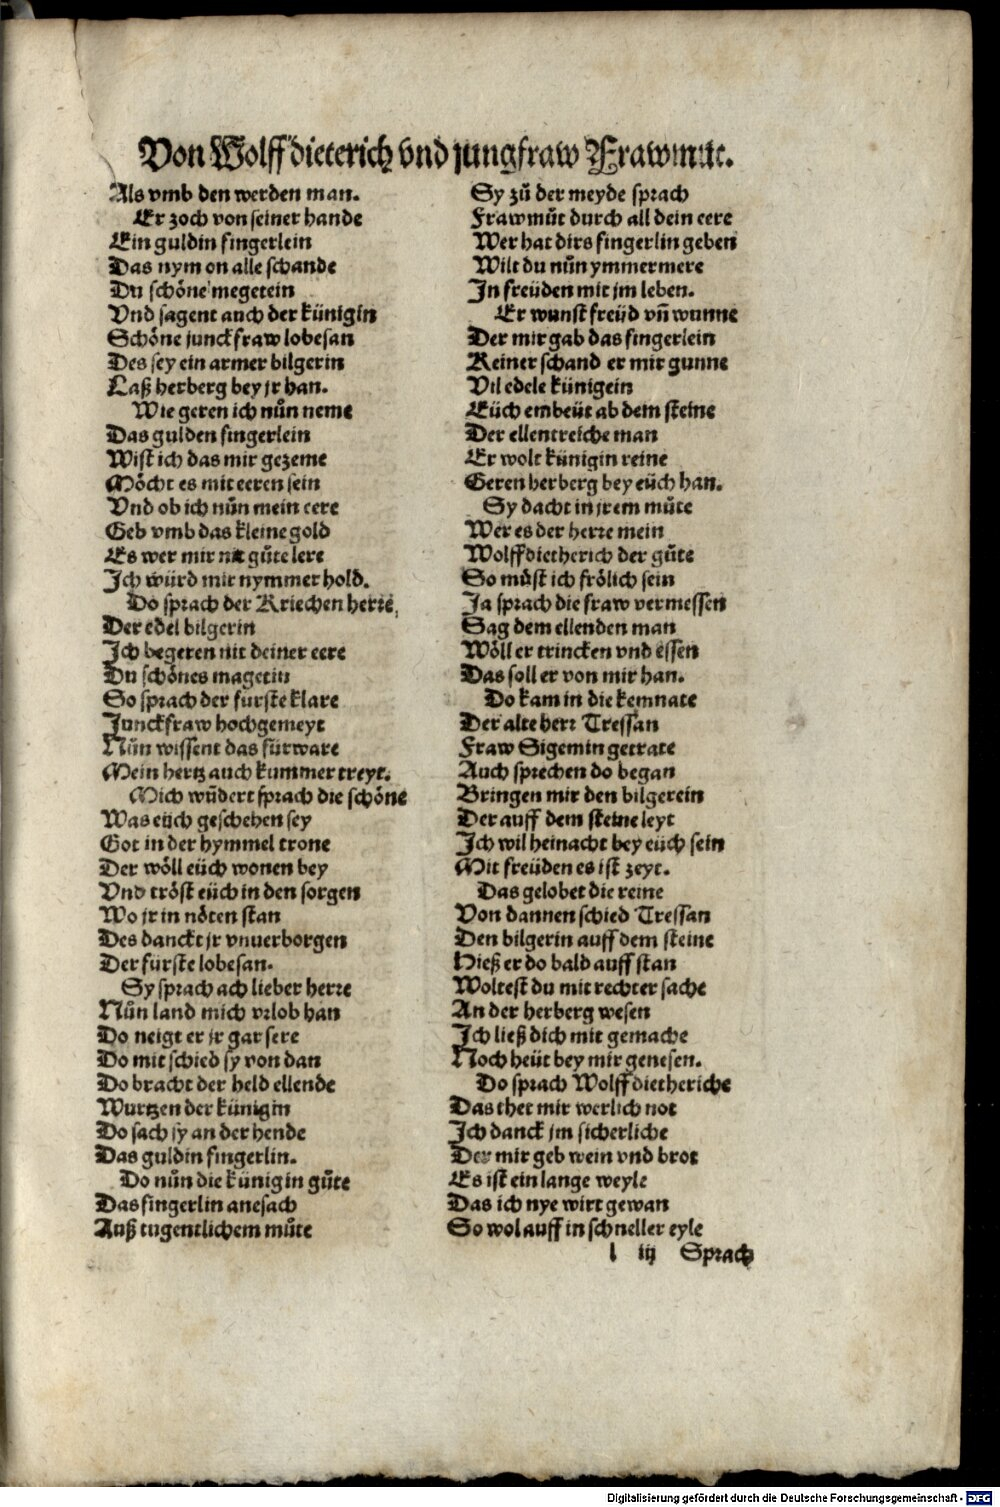 Von Wolffdieterich vnd jungfraw Frawmuͦt.
Als vmb den werden man.
Er zoch von seiner hande
Ein guldin fingerlein
Das nym on alle schande
Du schoͤne megetein
Vnd sagent auch der künigin
Schoͤne junckfraw lobesan
Des sey ein armer bilgerin
Laß herberg bey jr han.
Wie geren ich nuͦn neme
Das gulden fingerlein
Wist ich das mir gezeme
Moͤcht es mit eeren sein
Vnd ob ich nuͦn mein eere
Geb vmb das kleine gold
Es wer mir nit guͦte lere
Ich würd mir nymmer hold.
Do sprach der Kriechen herre
Der edel bilgerin
Ich begeren nit deiner eere
Du schoͤnes magetin
So sprach der fürste klare
Junckfraw hochgemeyt
Nuͦn wissent das fürware
Mein hertz auch kummer treyt.
Mich wuͦdert sprach die schoͤne
Was eüch geschehen sey
Got in der hymmel trone
Der woͤll eüch wonen bey
Vnd troͤst eüch in den sorgen
Wo jr in noͤten stan
Des danckt jr vnuerborgen
Der fürste lobesan.
Sy sprach ach lieber herre
Nuͦn land mich vrlob han
Do neigt er jr gar sere
Do mit schied sy von dan
Do bracht der held ellende
Wurtzen der künigin
Do sach sy an der hende
Das guldin fingerlin.
Do nuͦn die künigin guͦte
Das fingerlin anesach
Auß tugentlichem muͦte
Sy zuͦ der meyde sprach
Frawmuͦt durch all dein eere
Wer hat dirs fingerlin geben
Wilt du nuͦn ymmermere
In freüden mit jm leben.
Er wunst freüd vn̄ wunne
Der mir gab das fingerlein
Keiner schand er mir gunne
Vil edele künigein
Eüch embeüt ab dem steine
Der ellentreiche man
Er wolt künigin reine
Geren herberg bey eüch han.
Sy dacht in jrem muͦte
Wer es der herre mein
Wolffdietherich der guͦte
So muͦst ich froͤlich sein
Ja sprach die fraw vermessen
Sag dem ellenden man
Woͤll er trincken vnd essen
Das soll er von mir han.
Do kam in die kemnate
Der alte herr Tressan
Fraw Sigemin getrate
Auch sprechen do began
Bringen mir den bilgerein
Der auff dem steine leyt
Ich wil heinacht bey eüch sein
Mit freüden es ist zeyt.
Das gelobet die reine
Von dannen schied Tressan
Den bilgerin auff dem steine
Hieß er do bald auff stan
Woltest du mit rechter sache
An der herberg wesen
Ich ließ dich mit gemache
Noch heüt bey mir genesen.
Do sprach Wolffdietheriche
Das thet mir werlich not
Ich danck jm sicherliche
Der mir geb wein vnd brot
Es ist ein lange weyle
Das ich nye wirt gewan
So wol auff in schneller eyle
l iij Sprach
Digitalisierung gefördert durch die Deutsche Forschungsgemeinschaft - DFG